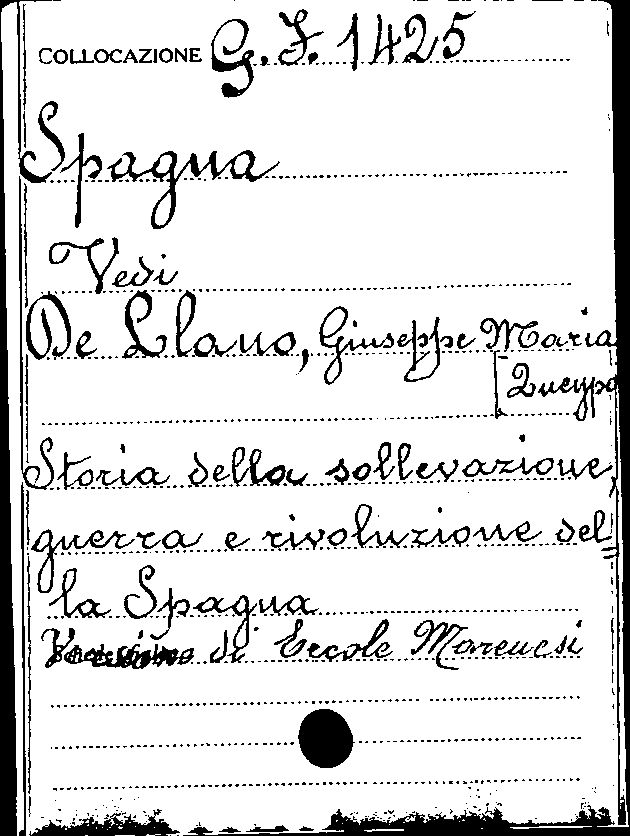 COLLOCAZIONE G. F. 1425
Spagna
Vedi
De Llano, Giuseppe Maria
[Queypo
Storia della sollevazione,
guerra e rivoluzione del=
la Spagna
di Ercole Marenesi